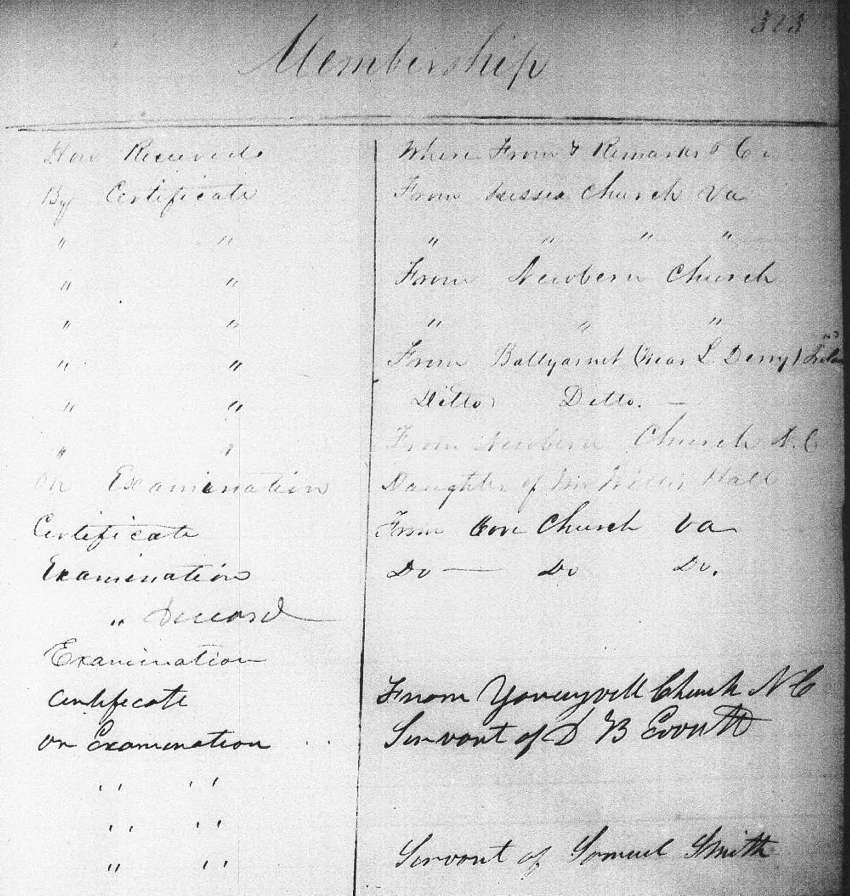 303
Membership
How Received Where From & Remarks &C
By Certificate From Church Va
" " " " " "
" " From Newbern Church
" " " " "
" " From Ballyarnet (Near L Derry) Ireland
" " Ditto Ditto. —
" " From Newbern Church N.C
On Examination Daughter of Hall
Certificate From Cove Church Va
Examination Do — Do Do.
"
Examination
Certificate From Yanceyvill Church N C
on Examination .. Servant of D B
" "
" "
" " Servant of Samuel Smith